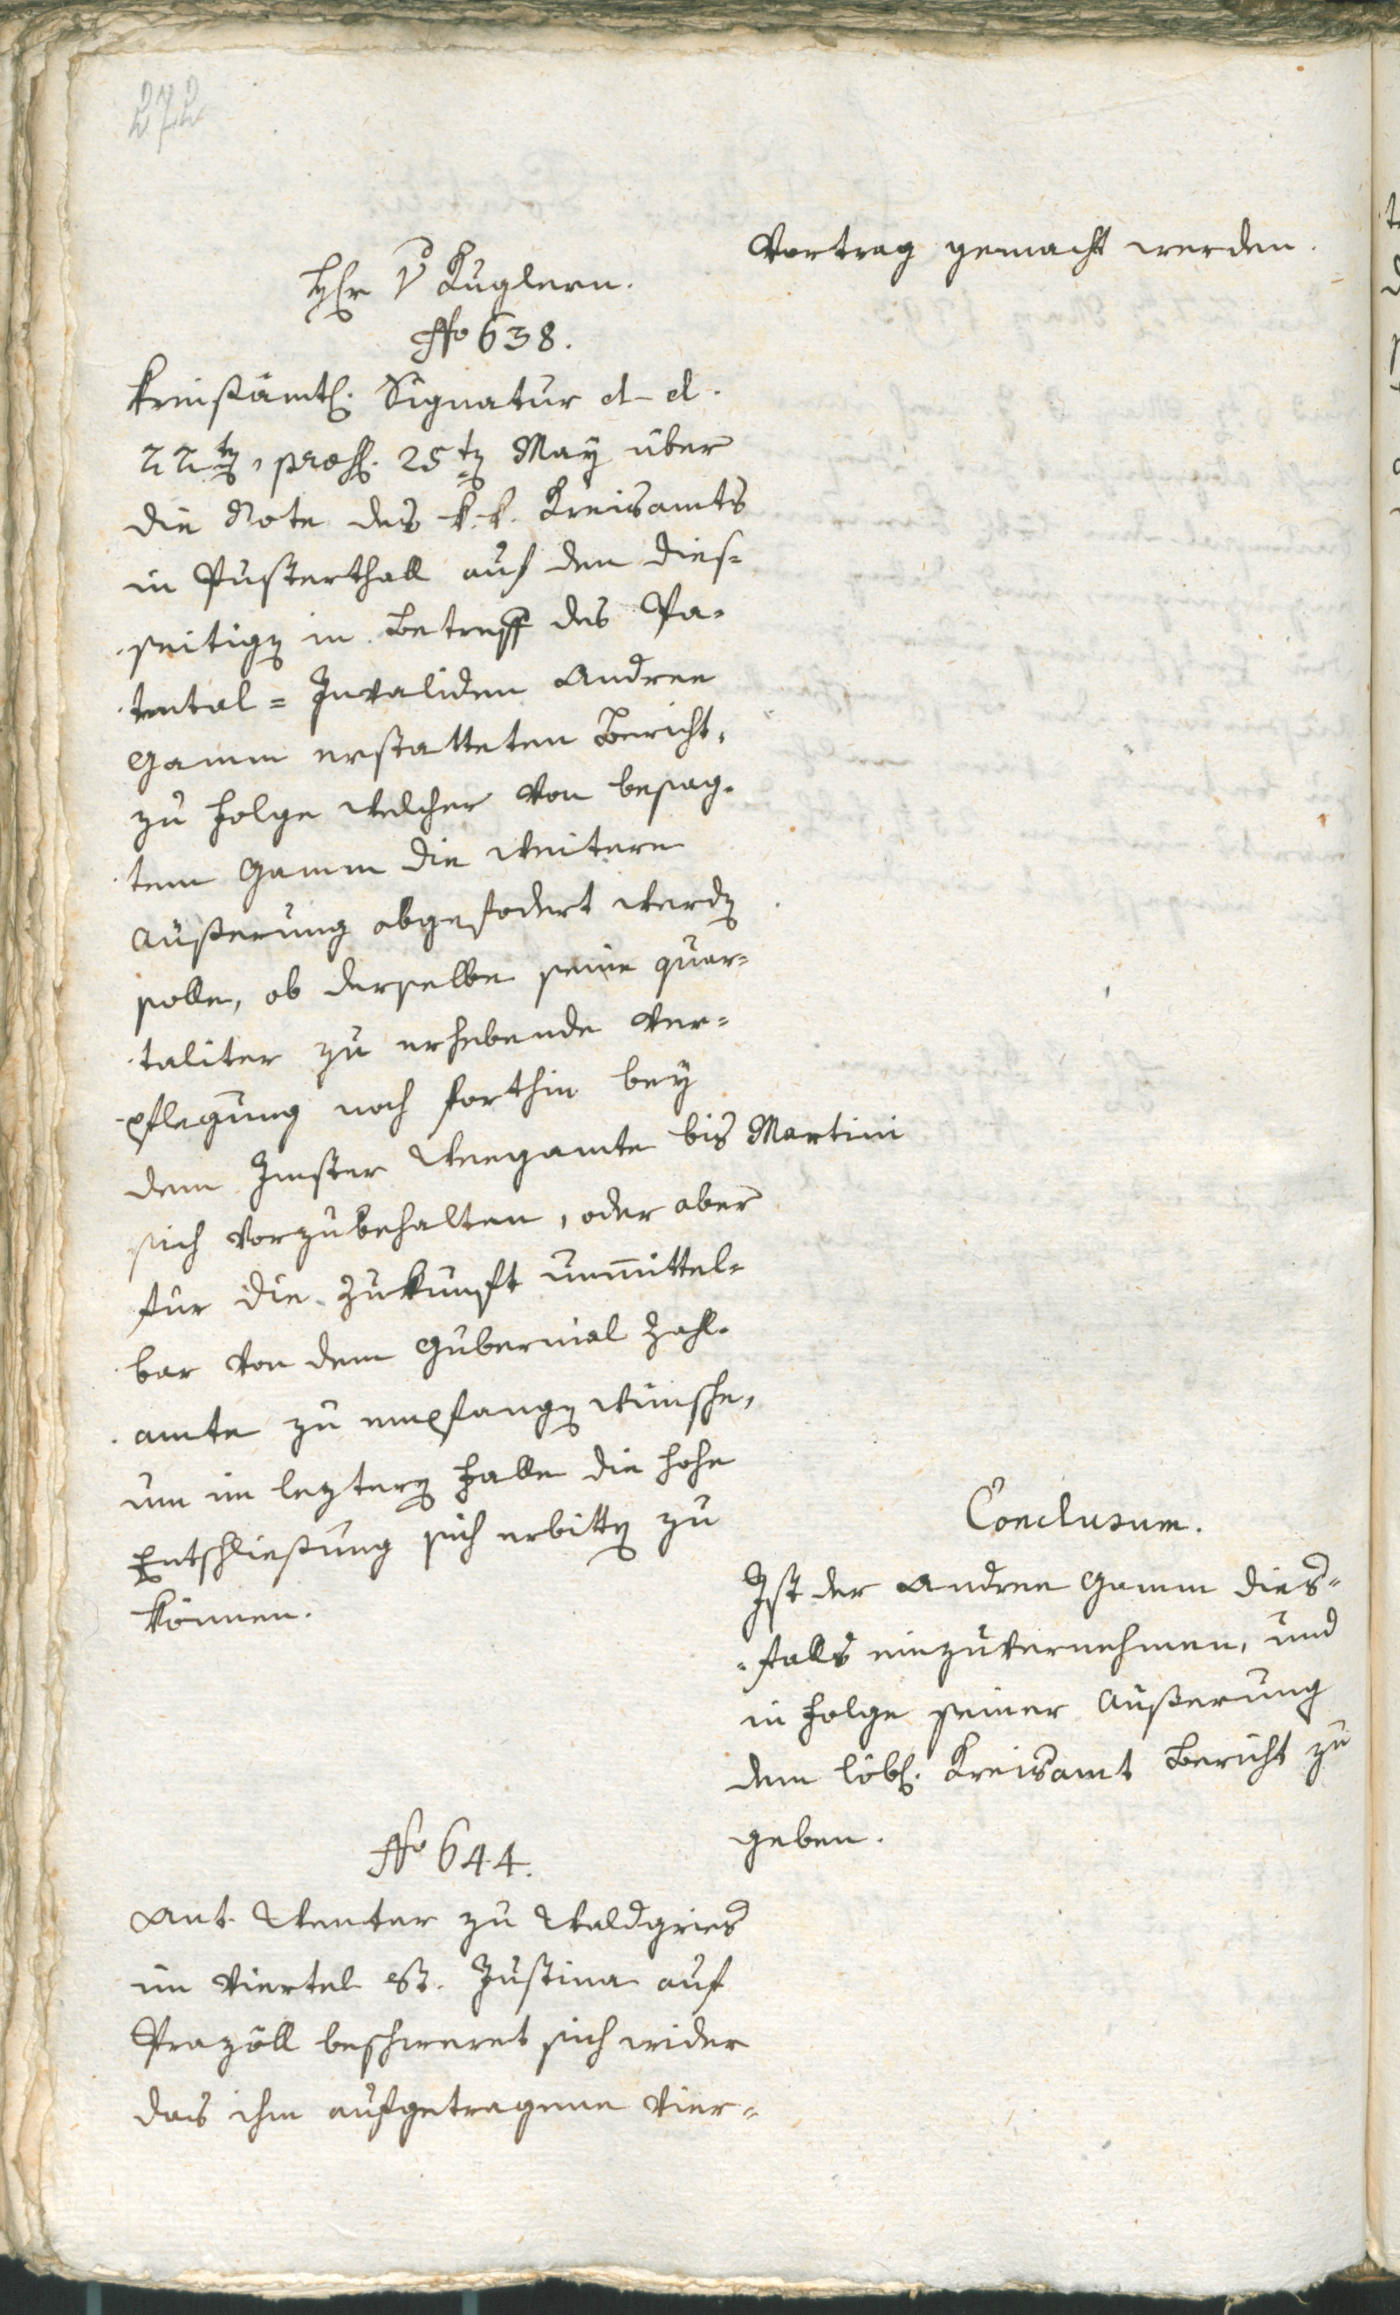 272
Vortrag gemacht werden.
H Hr v Kuglern.
No 638.
Kreisämtl. Signatur d. d.
22ten, präs. 25ten May über
die Note des k. k. Kreisamts
in Pusterthall auf den dies-
seitigen in Betreff des Pa-
tental-Invaliden Andree
Gamm erstatteten Bericht,
zu Folge welcher von besag-
tem Gamm die weitere
Äußerung abgefodert werden
solle, ob derselbe seine quar-
taliter zu erhebende Ver-
pflegung noch forthin bey
dem Imster Weegamte bis Martini
sich vorzubehalten, oder aber
für die Zukunft unmittel-
bar von dem Gubernial Zahl-
amte zu empfangen wünsche,
um im lezteren Falle die hohe
Entschließung sich erbitten zu
können.
Conclusum.
Ist der Andree Gamm dies-
falls einzuvernehmen, und
in Folge seiner Äußerung
dem löbl. Kreisamt Bericht zu
geben.
No 644.
Ant. Wenter zu Waldgries
im Viertel St. Justina auf
Prazöll beschweret sich wider
das ihm aufgetragene Vier-